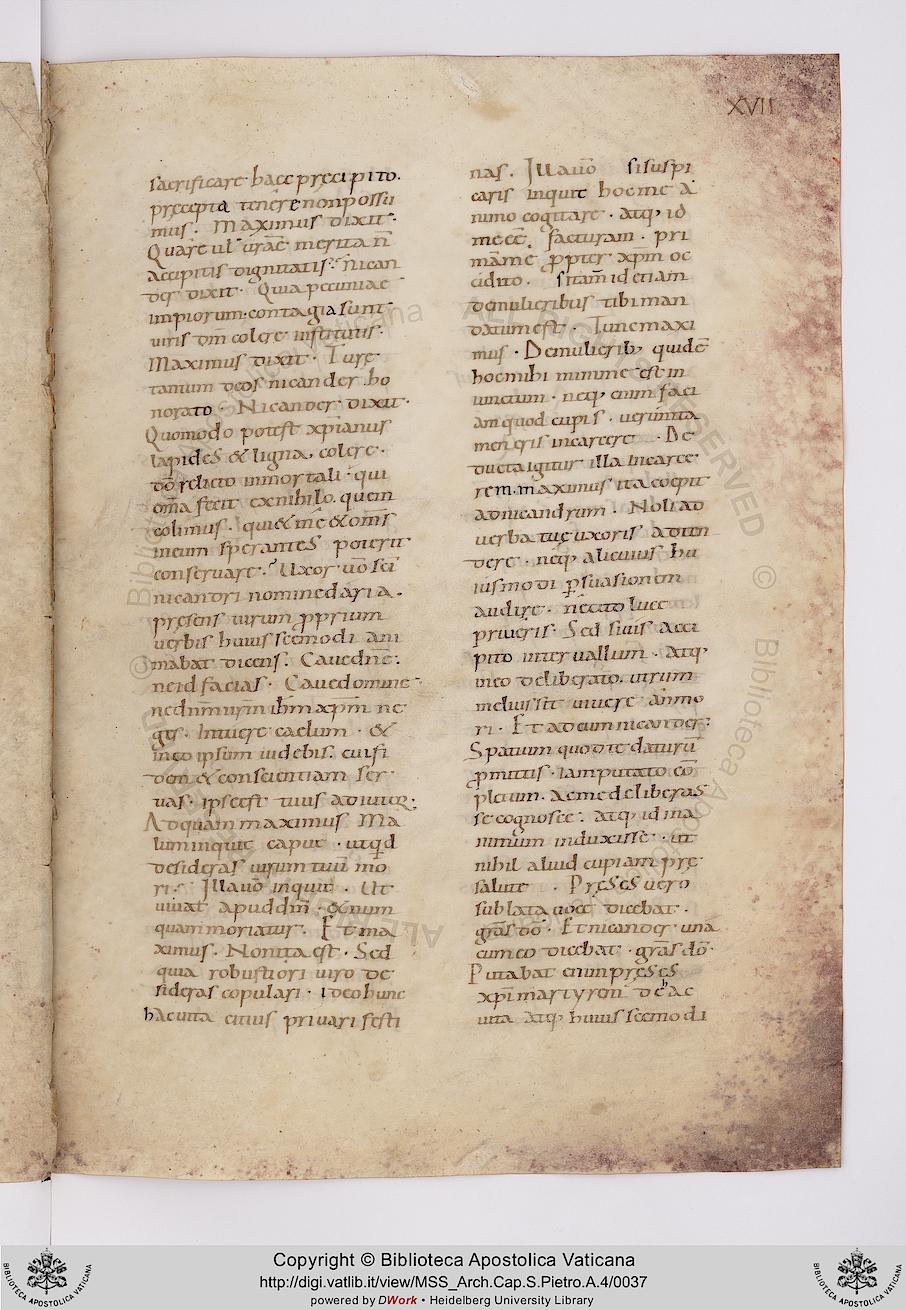 XVII
sacrificare haec precipito.
precepta tenere non possu
mus. Maximus dixit.
Quare ul uräe merita n̄
accipitis dignitatis. Nican
der dixit. Quia pecuniae
impiorum contagia sunt
uiris dm̄ colere institutis.
Maximus dixit. Ture
tantum deos nicander ho
norato. Nicander dixit.
Quomodo potest xp̄ianus
lapides & ligna, colere.
dō relicto inmortali. qui
om̄a fecit ex nihilo. quem
colimus. qui & me & om̄s
ineum sperantes poterit
conseruare. Uxor uō sc̄i
nicandri nomine daria.
presens uirum proprium
uerbis huiusscemodi ani
mabat dicens. Caue dn̄e.
ne id facias. Caue domine
ne dn̄m n̄rm ih̄m xp̄m ne
ges. Intuere caelum. &
ineo ipsum uidebis. cui fi
dem & conscientiam ser
uas. ipse est tuus adiutor.
Ad quam maximus. Ma
lum inquit caput. utquid
desideras uirum tuū mo
ri. Illa uō inquit. Ut
uiuat apud dm̄. & num
quam moriatur. Et ma
ximus. Non ita est. Sed
quia robustiori uiro de
sideras copulari. ideo hunc
hac uita citius priuari festi
nas. Illa uō si suspi
caris inquit hoc me a
nimo cogitare. atq; id
me eē facturam. pri
mā me propter xp̄m oc
cidito. si tam̄ id etiam
de mulieribus tibi man
datum est. Tunc maxi
mus. De mulierib; quidē
hoc mihi minime est in
iunctum. neq; enim faci
am quod cupis. uerūnta
men eris in carcere. De
ducta igitur illa in carce
rem. maximus ita coepit
ad nicandrum. Noli ad
uerba tue uxoris adten
dere. neq; alicuius hu
iusmodi persuasionem
audire. ne cito luce
priueris. Sed si uis acci
pito interuallum. atq;
ineo deliberato. utrum
melius sit uiuere an mo
ri. Et ad eum nicander.
Spatium quod te daturū
promittis. iam putato cō
pletum. ac me deliberas
se cognosce. atq; id in a
nimum induxisse. ut
nihil aliud cupiam pre
salute. Preses uero
sublata uoce dicebat.
gras dō. Et nicander una
cum eo dicebat. gras dō.
Putabat enim preses
xp̄i martyrem de hac
uita atq; huiusscemodi
Copyright © Biblioteca Apostolica Vaticana
http://digi.vatlib.it/view/MSS_Arch.Cap.S.Pietro.A.4/0037
powered by DWork • Heidelberg University Library